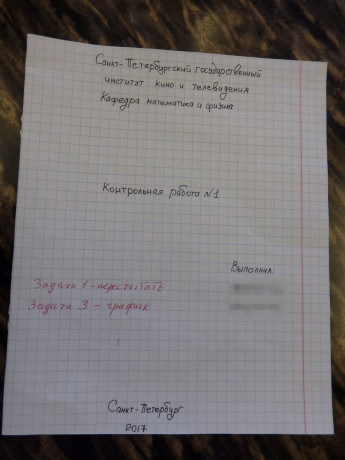 Санкт-Петербургский государственный
институт кино и телевидения
Кафедра математика и физика
Контрольная работа №1
Выполнил:
Задача 1 - пересчитать
Задача 3 - график
Санкт-Петербург
2017